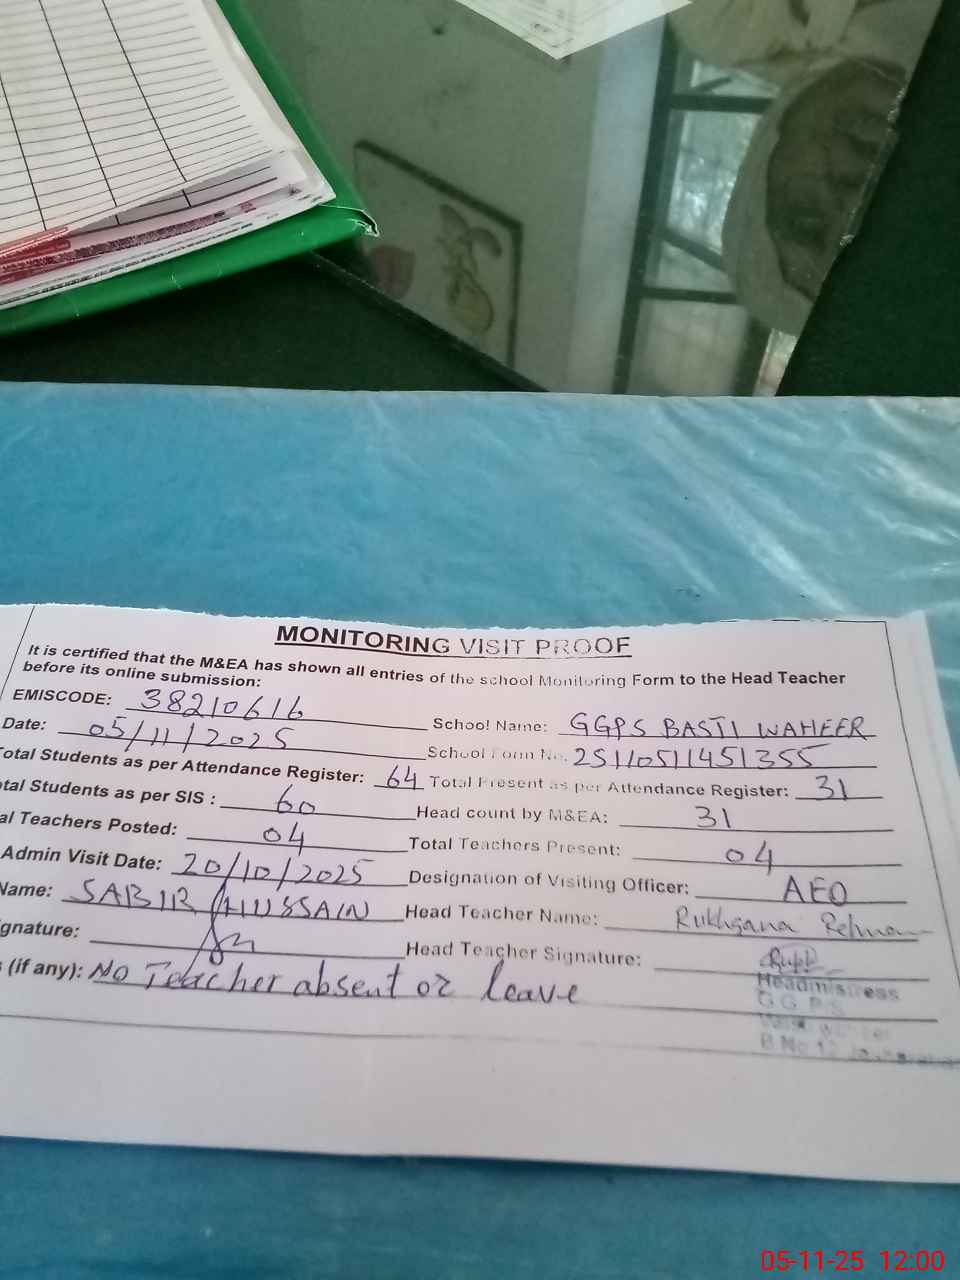 MONITORING VISIT PROOF
It is certified that the M&EA has shown all entries of the school Monitoring Form to the Head Teacher
before its online submission:
EMISCODE: 38210616 School Name: GGPS BASTI WAHEER
Date: 05/11/2025 School Form No. 25110511451355
otal Students as per Attendance Register: 64 Total Present as per Attendance Register: 31
tal Students as per SIS : 60 Head count by M&EA: 31
al Teachers Posted: 04 Total Teachers Present: 04
Admin Visit Date: 20/10/2025 Designation of Visiting Officer: AEO
Name: SABIR HUSSAIN Head Teacher Name: Rukhsana Rehman
gnature: Head Teacher Signature:
(if any): No Teacher absent or leave
Headmistress
G.G.P.S
05-11-25 12:00